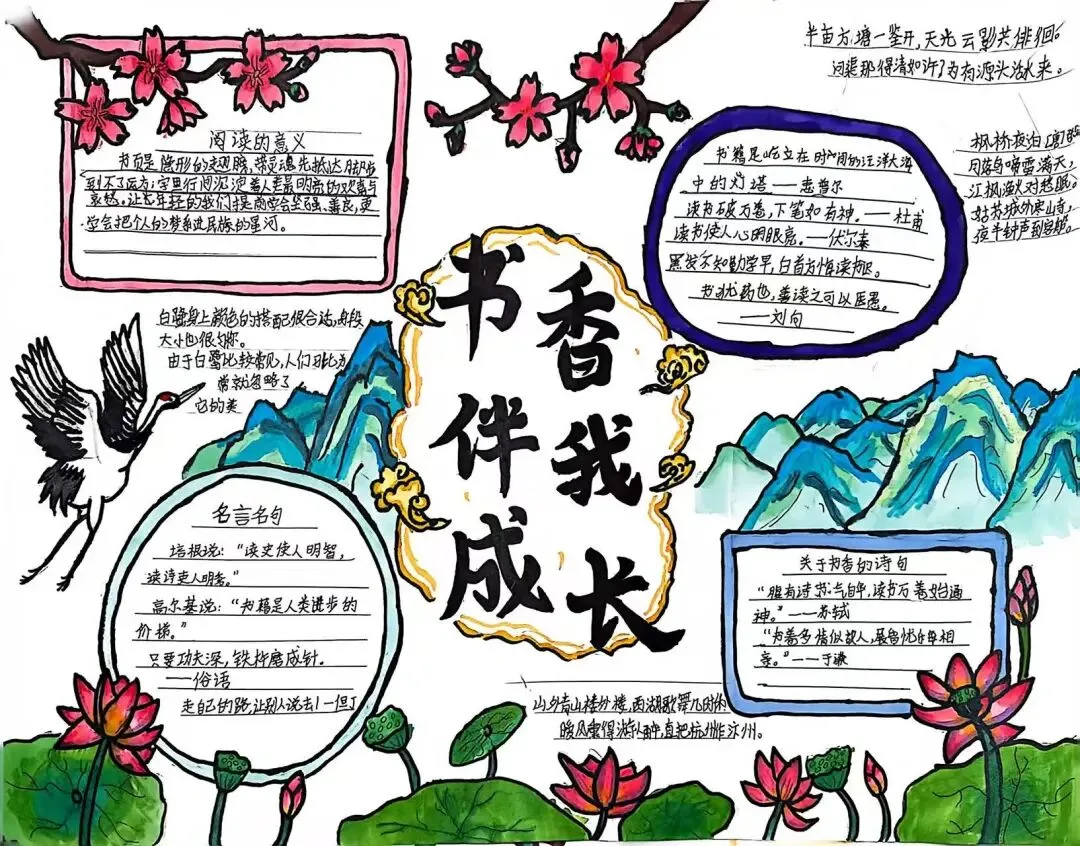 阅读的意义
书页是隐形的翅膀,带灵魂先抵达脚步
到不了远方;字里行间沉淀着人类最明亮的欢喜与
哀愁,让年轻的我们提前学会坚强、善良,更
学会把个人的梦系进民族的星河。
半亩方塘一鉴开,天光云影共徘徊。
问渠那得清如许?为有源头活水来。
书籍是屹立在时间的汪洋大海
中的灯塔——惠普尔
读书破万卷,下笔如有神。——杜甫
读书使人心明眼亮。——伏尔泰
黑发不知勤学早,白首方悔读书迟。
书犹药也,善读之可以医愚。
——刘向
枫桥夜泊[唐]
月落乌啼霜满天,
江枫渔火对愁眠。
姑苏城外寒山寺,
夜半钟声到客船。
书香
伴我
成长
白鹭身上颜色的搭配很合适,身段
大小也很
由于白鹭比较常见,人们
常就忽略了
它的美
名言名句
培根说:“读史使人明智,
读诗使人明秀。”
高尔基说:“书籍是人类进步的
价梯。”
只要功夫深,铁杵磨成针。
——俗语
走自己的路,让别人说去!—但丁
关于书香的诗句
“腹有诗书气自华,读书万卷始通
神。”——苏轼
“书卷多情似故人,晨昏忧乐每相
亲。”——于谦
山外青山楼外楼,西湖歌舞几时休
暖风熏得游人醉,直把杭州作汴州。